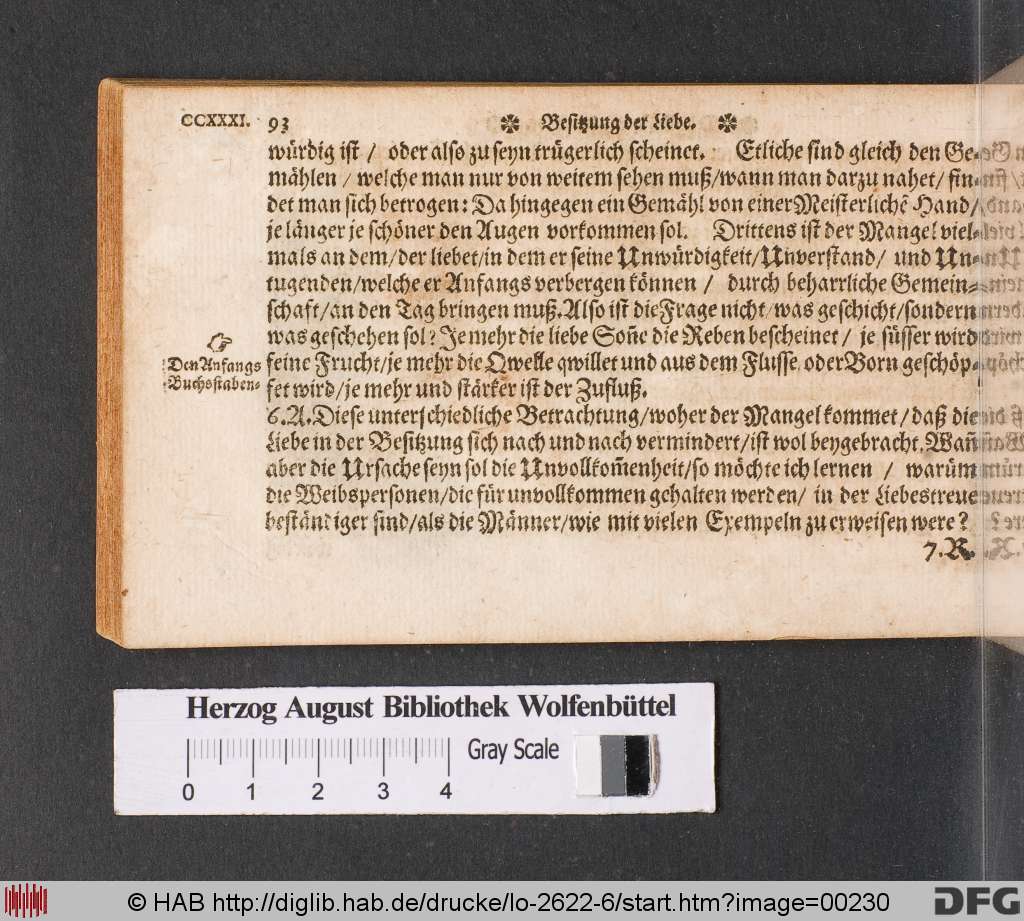 CCXXXI. 93 Besitzung der Liebe.
würdig ist / oder also zu seyn trügerlich scheinet. Etliche sind gleich den Ge-
mählen / welche man nur von weitem sehen muß/wann man darzu nahet/ fin-
det man sich betrogen: Da hingegen ein Gemähl von einer Meisterlichẽ Hand/
je länger je schöner den Augen vorkommen sol. Drittens ist der Mangel viel-
mals an dem/der liebet/in dem er seine Unwürdigkeit/Unverstand/ und Un-
tugenden/welche er Anfangs verbergen können / durch beharrliche Gemein-
schaft/an den Tag bringen muß. Also ist die Frage nicht/was geschicht/sondern
was geschehen sol? Je mehr die liebe Soñe die Reben bescheinet / je süsser wird
Den Anfangs
Buchstaben-
seine Frucht/je mehr die Qwelle qwillet und aus dem Flusse oder Born geschöp-
fet wird/je mehr und stärker ist der Zufluß.
6. A. Diese unterschiedliche Betrachtung/woher der Mangel kommet/daß die
Liebe in der Besitzung sich nach und nach vermindert/ist wol beygebracht. Wañ
aber die Ursache seyn sol die Unvollkom̃enheit/so möchte ich lernen / warüm
die Weibspersonen/die für unvollkommen gehalten werden/ in der Liebestreue
beständiger sind/als die Männer/wie mit vielen Exempeln zu erweisen were?
7. R.
Herzog August Bibliothek Wolfenbüttel
Gray Scale
0 1 2 3 4
© HAB http://diglib.hab.de/drucke/lo-2622-6/start.htm?image=00230
DFG